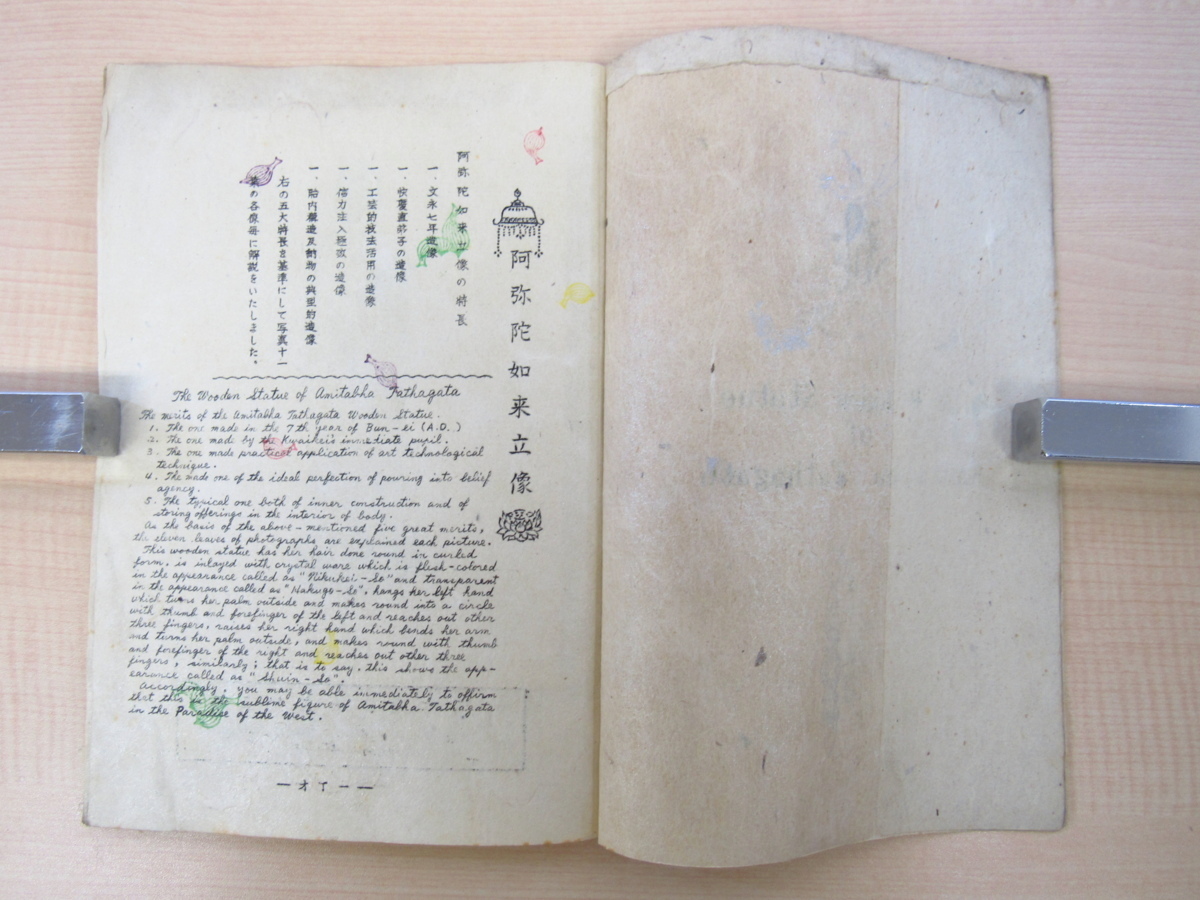 阿弥陀如来立像
阿弥陀如来立像の特長
一、文永七年造像
一、快慶直弟子の造像
一、工芸的技法活用の造像
一、信力注入極致の造像
一、胎内構造及納物の典型的造像
右の五大特長を基準にして写真十一
葉の各像毎に解説をいたしました。
The Wooden Statue of Amitabha Tathagata
The merits of the Amitabha Tathagata Wooden Statue.
1. The one made in the 7th year of Bun-ei (A.D. )
2. The one made by the Kwaikei's immediate pupil.
3. The one made practical application of art technological
technique.
4. The made one of the ideal perfection of pouring into belief
agency.
5. The typical one both of inner construction and of
storing offerings in the interior of body.
As the basis of the above-mentioned five great merits,
the eleven leaves of photographs are explained each picture.
This wooden statue has her hair done round in curled
form, is inlayed with crystal ware which is flesh-colored
in the appearance called as "Nikukei-So" and transparent
in the appearance called as "Hakugo-So", hangs her left hand
which turns her palm outside and makes round into a circle
with thumb and forefinger of the left and reaches out other
three fingers, raises her right hand which bends her arm
and turns her palm outside, and makes round with thumb
and forefinger of the right and reaches out other three
fingers, similarly; that is to say, this shows the app-
earance called as "Shuin-So".
Accordingly, you may be able immediately to affirm
that this is the sublime figure of Amitabha Tathagata
in the Paradise of the West.